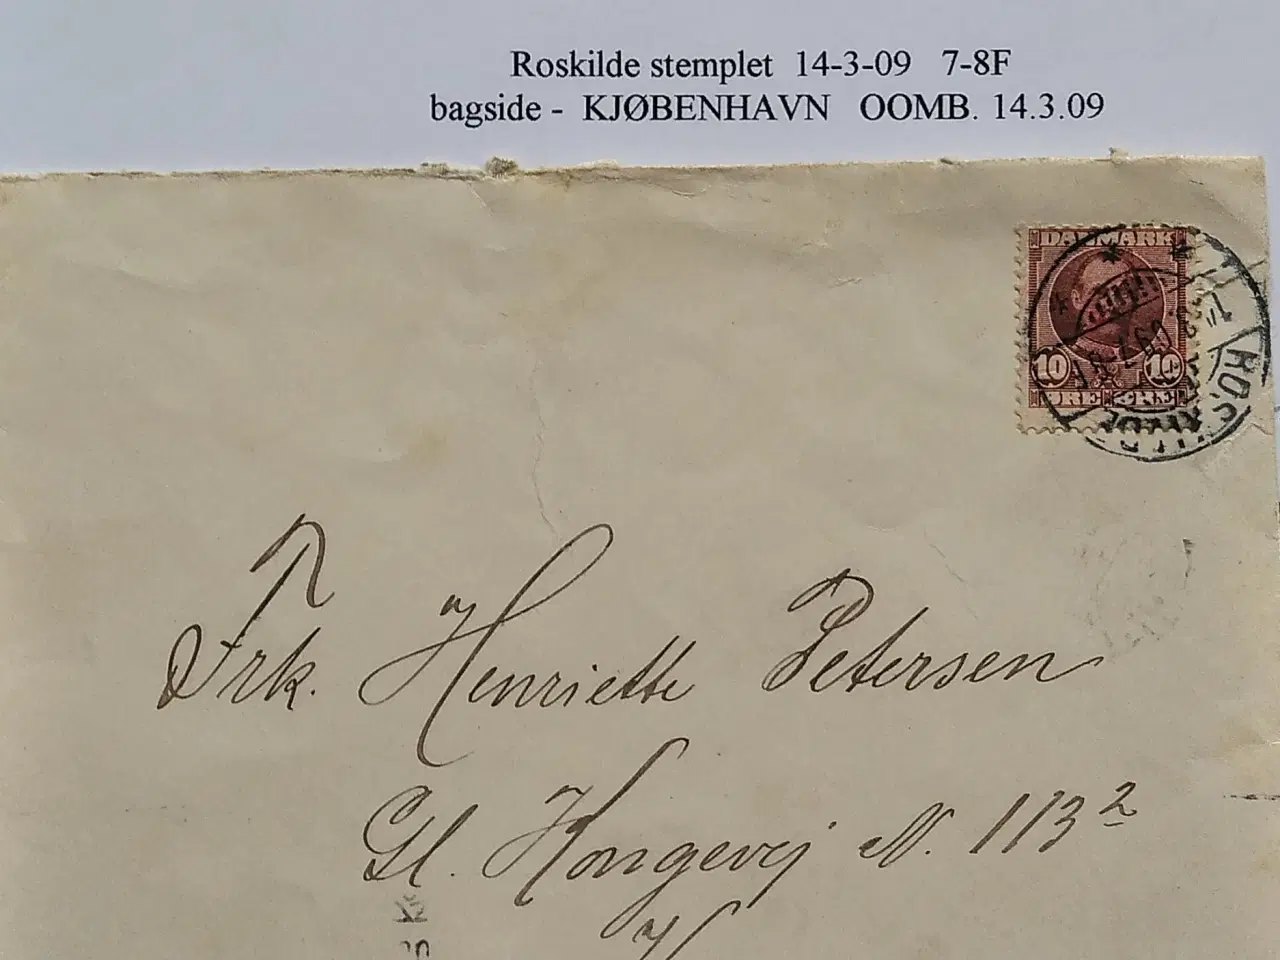 Roskilde stemplet 14-3-09 7-8F
bagside - KJØBENHAVN OOMB. 14.3.09
DANMARK
10 10
ØRE ØRE
ROSKILDE
Frk. Henriette Petersen
Gl. Kongevej N. 113 2